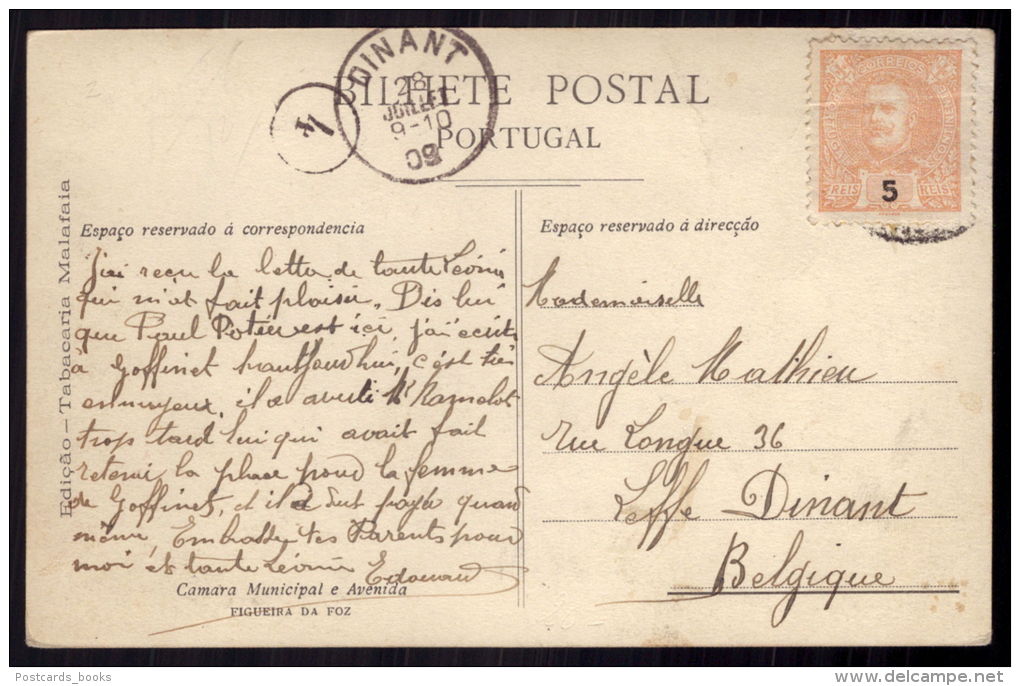 BILHETE POSTAL
PORTUGAL
DINANT
28
JUILLET
9-10
4
CORREIOS
REIS 5 REIS
Espaço reservado á correspondencia
Espaço reservado á direcção
J'ai reçu la lettre de tante Léonie
qui m'a fait plaisir. Dis lui
que Paul est ici, j'ai écrit
à Goffinet c'est très
ennuyeux, il a averti Mr Ramelot
trop tard lui qui avait fait
retenir la place pour la femme
de Goffinet, et il a dut payé quand
même, Embrasse tes Parents pour
moi et tante Léonie Edouard
Mademoiselle
Angèle Mathieu
rue Longue 36
Leffe Dinant
Belgique
Camara Municipal e Avenida
FIGUEIRA DA FOZ
Edição – Tabacaria Malafaia
Postcards_books
www.delcampe.net